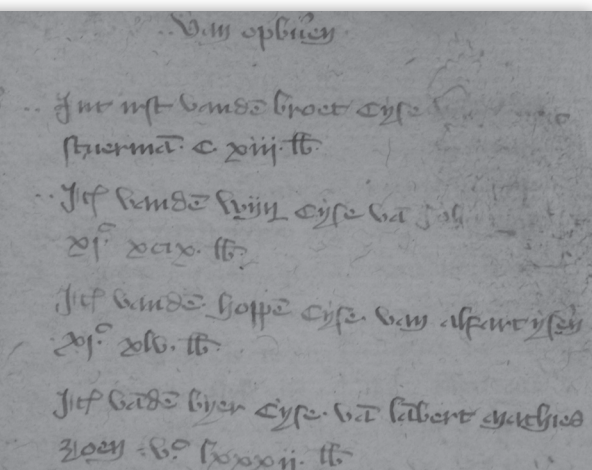 van opbůren
Int irst vandē broet Cyse
stuermā. C xiij. lb.
Itē vandē wijn Cyse vā Joh
xjᶜ xcix. lb.
Itē vandē hoppē Cyse van alfart ysen
xjᶜ xlv. lb.
Itē vādē byer Cyse. vā lābert mathies
zoen .vᶜ lxxxij. lb